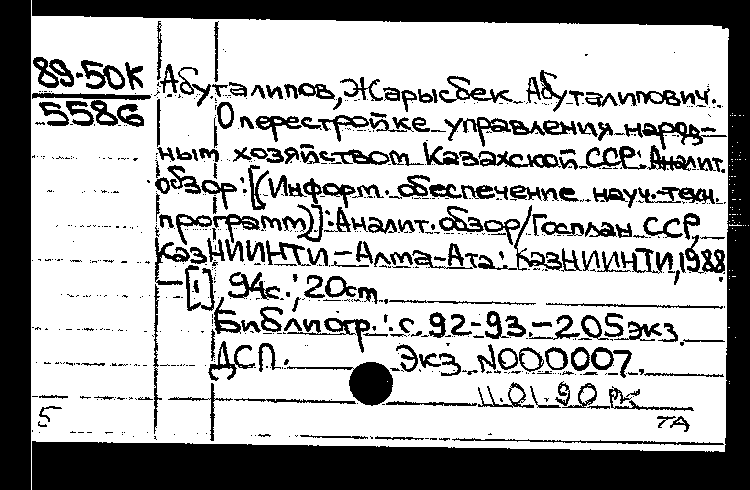 89-50К
5586
Абуталипов, Жарысбек Абуталипович.
О перестройке управления народ-
ным хозяйством Казахской ССР: Аналит.
обзор: [(Информ. обеспечение науч.-техн.
программ)]: Аналит. обзор/Госплан ССР,
КазНИИНТИ.-Алма-Ата: КазНИИНТИ, 1988
-[1], 94с.; 20cm.
Библиогр.: с. 92-93.-205экз.
ДСП. Экз N000007.
11.01.90
5 ТА